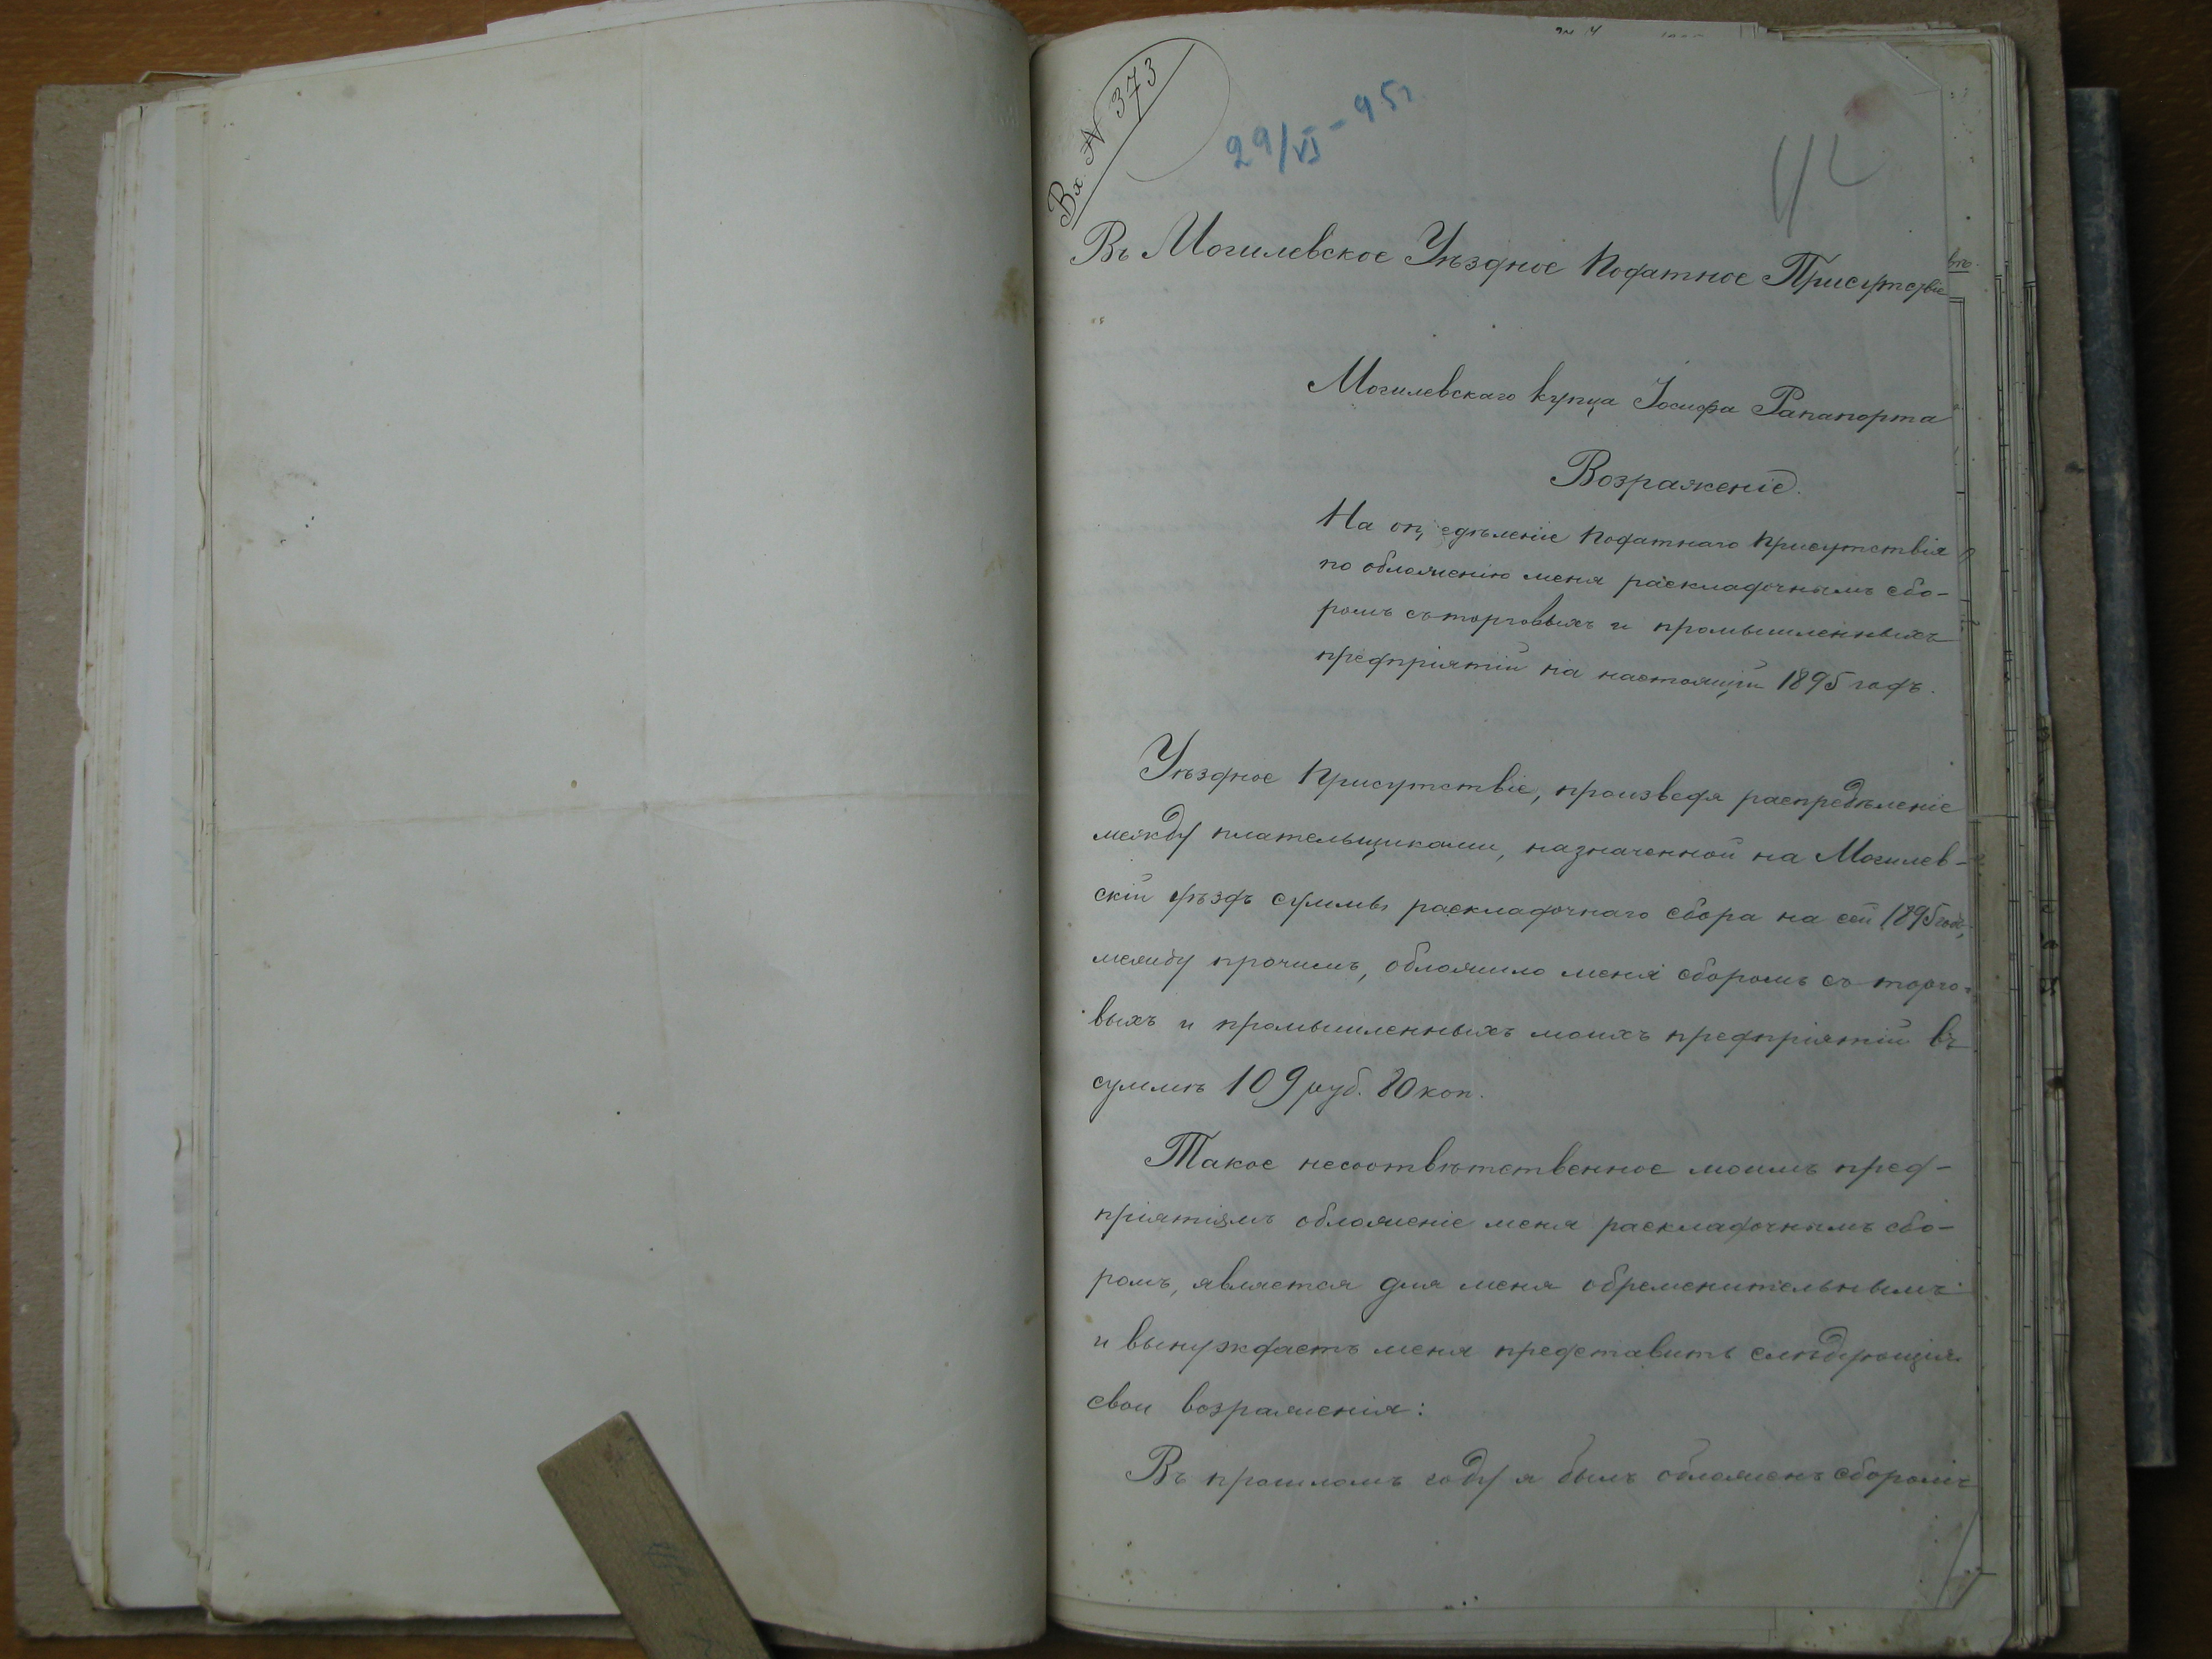 Вх. № 373
29/VI - 95 г.
Въ Могилевское Уѣздное Податное Присутствіе
Могилевскаго купца Іосифа Рапапорта
Возраженіе.
На опредѣленіе Податнаго Присутствія
по обложенію меня раскладочнымъ сбо-
ромъ съ торговыхъ и промышленныхъ
предпріятій на настоящій 1895 годъ.
Уѣздное Присутствіе, произведя распредѣленіе
между плательщиками, назначенной на Могилев-
скій уѣздъ суммы раскладочнаго сбора на сей 1895 годъ,
между прочимъ, обложило меня сборомъ съ торго-
выхъ и промышленныхъ моихъ предпріятій въ
суммѣ 109 руб. 80 коп.
Такое несоотвѣтственное моимъ пред-
пріятіямъ обложеніе меня раскладочнымъ сбо-
ромъ, является для меня обременительнымъ
и вынуждаетъ меня представить слѣдующія
свои возраженія:
Въ прошломъ году я былъ обложенъ сборомъ